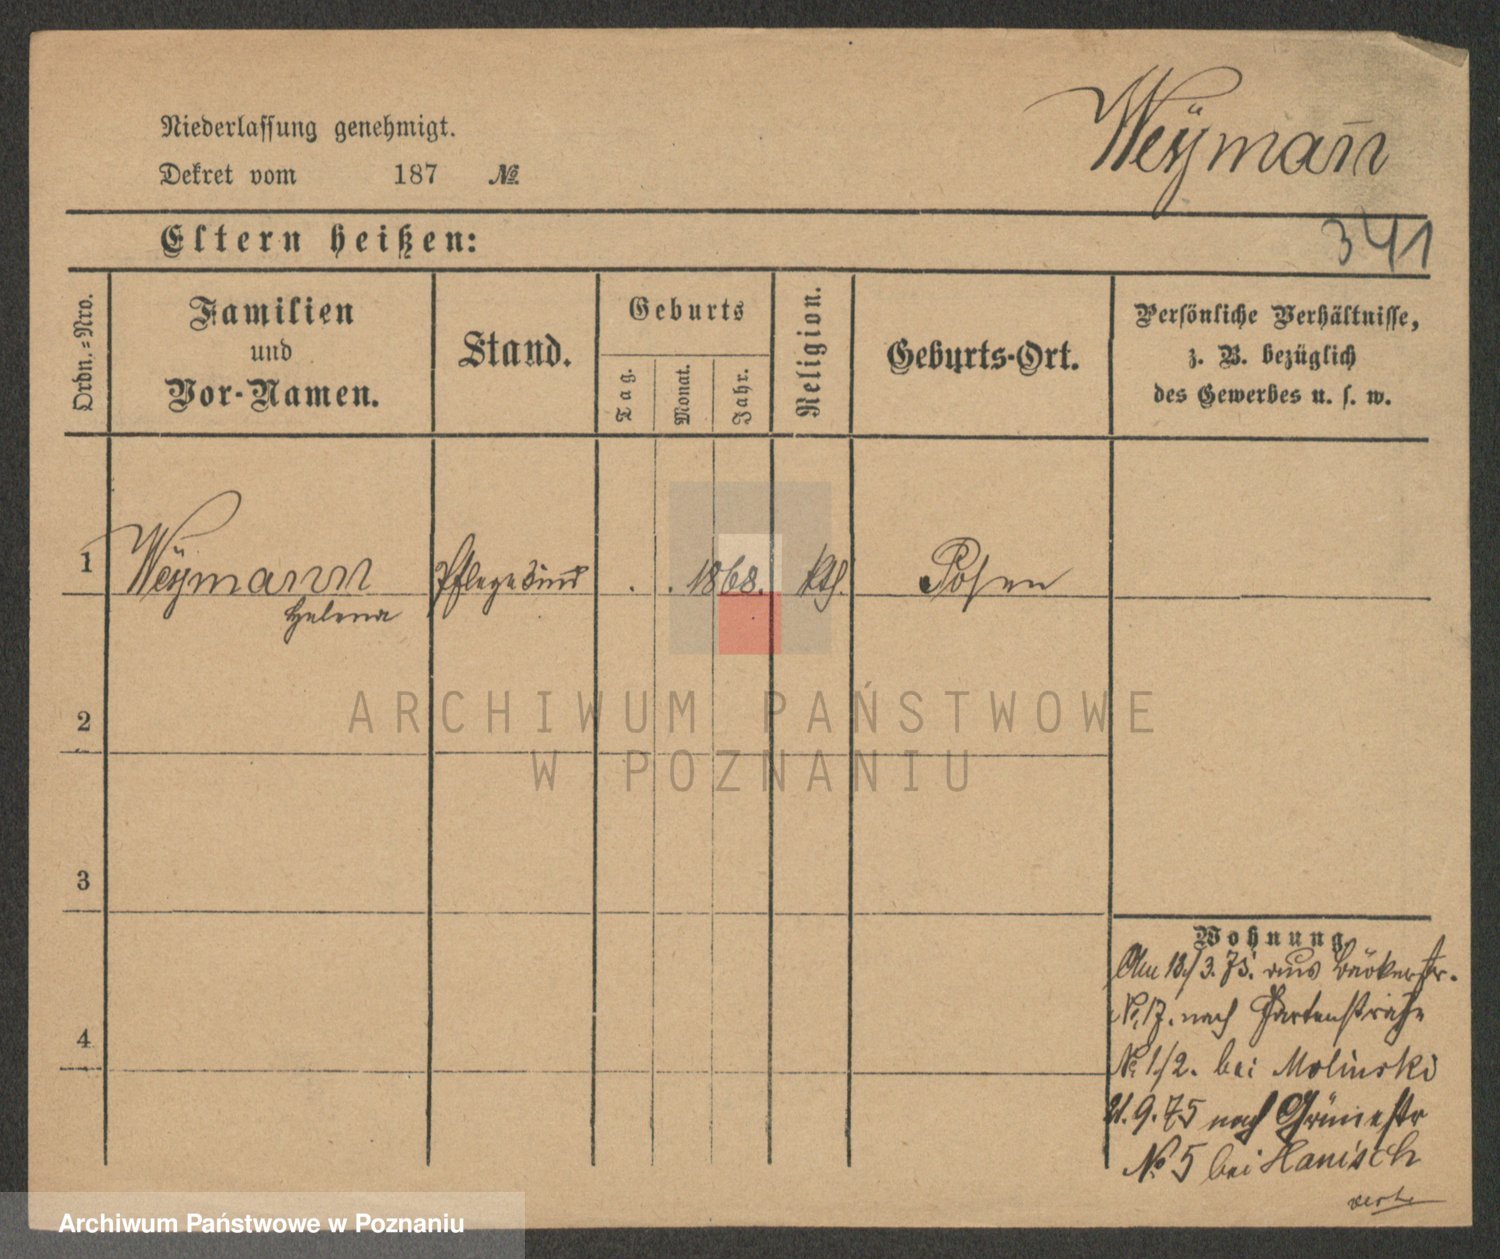 Weÿman̅
Niederlassung genehmigt.
Dekret vom 187 №
Eltern heißen:
341
Ordn.=Nro.
Familien
und
Vor-Namen.
Stand.
Geburts
Tag.
Monat.
Jahr.
Religion.
Geburts-Ort.
Persönliche Verhältnisse,
z. B. bezüglich
des Gewerbes u. s. w.
1 Weÿmann Pflegekind . . 1868. kth. Posen
Helena
2
3
4
ARCHIWUM PAŃSTWOWE
W POZNANIU
Wohnung
Am 13/3.75. aus Bäckerstr.
№ 17. nach Gartenstraße
№ 1/2. bei Molinski
21.9.75 nach Grünestr
№ 5 bei Hanisch
Archiwum Państwowe w Poznaniu